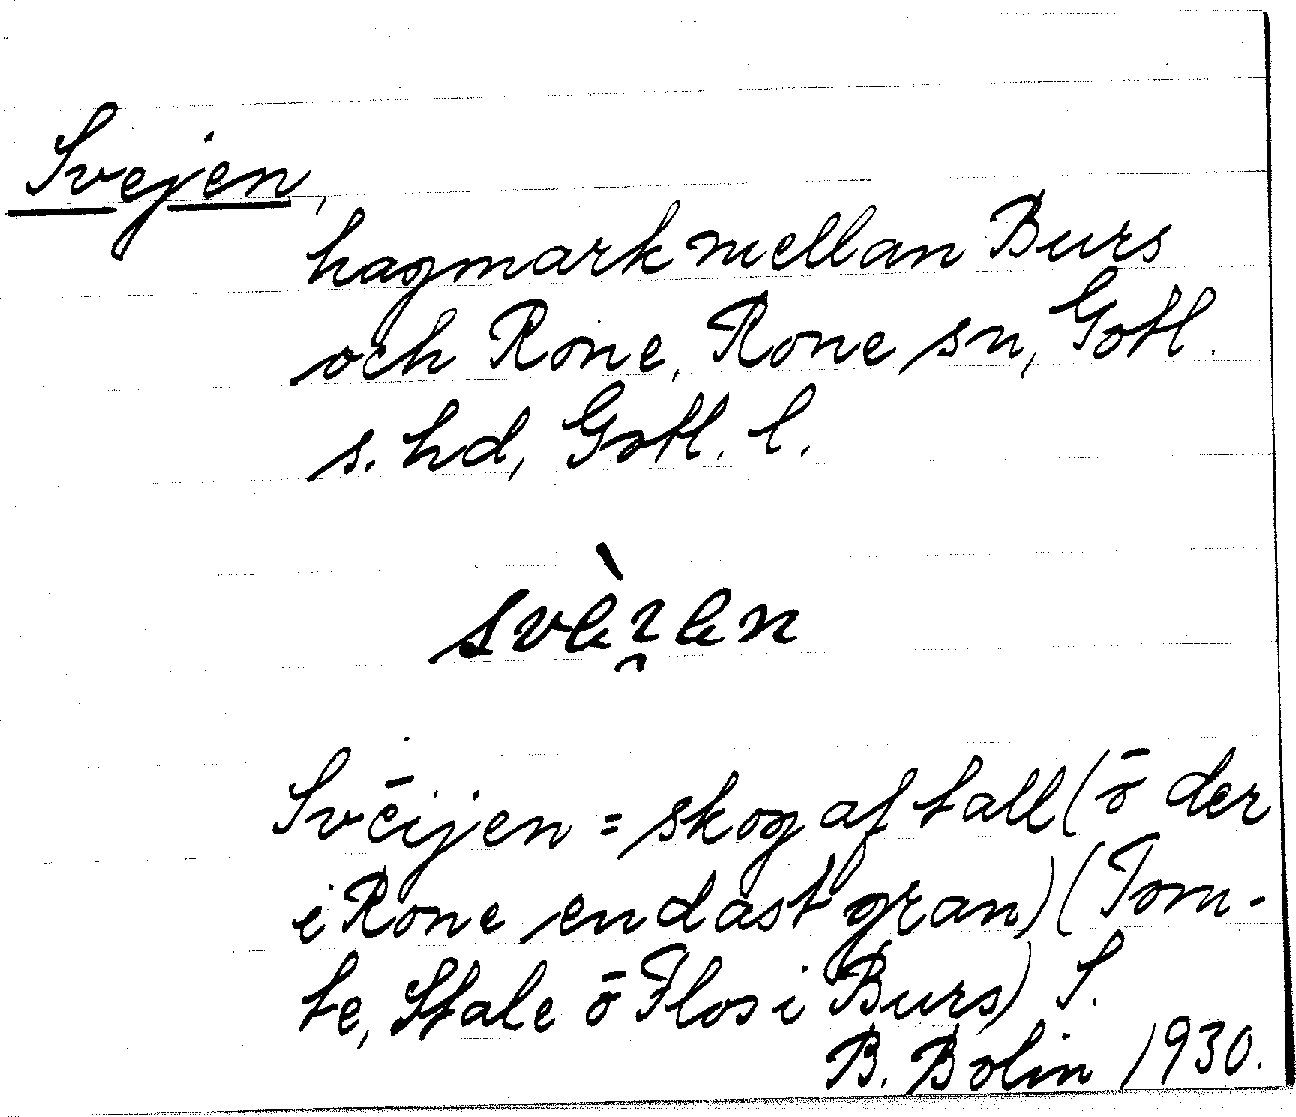 Svejen,
hagmark mellan Burs
och Rone, Rone sn, Gotl.
s. hd, Gotl. l.
Svēijen = skog af tall (ō der
i Rone endast gran) (Tom-
te, Stale ō Flos i Burs) S.
B. Bolin 1930.